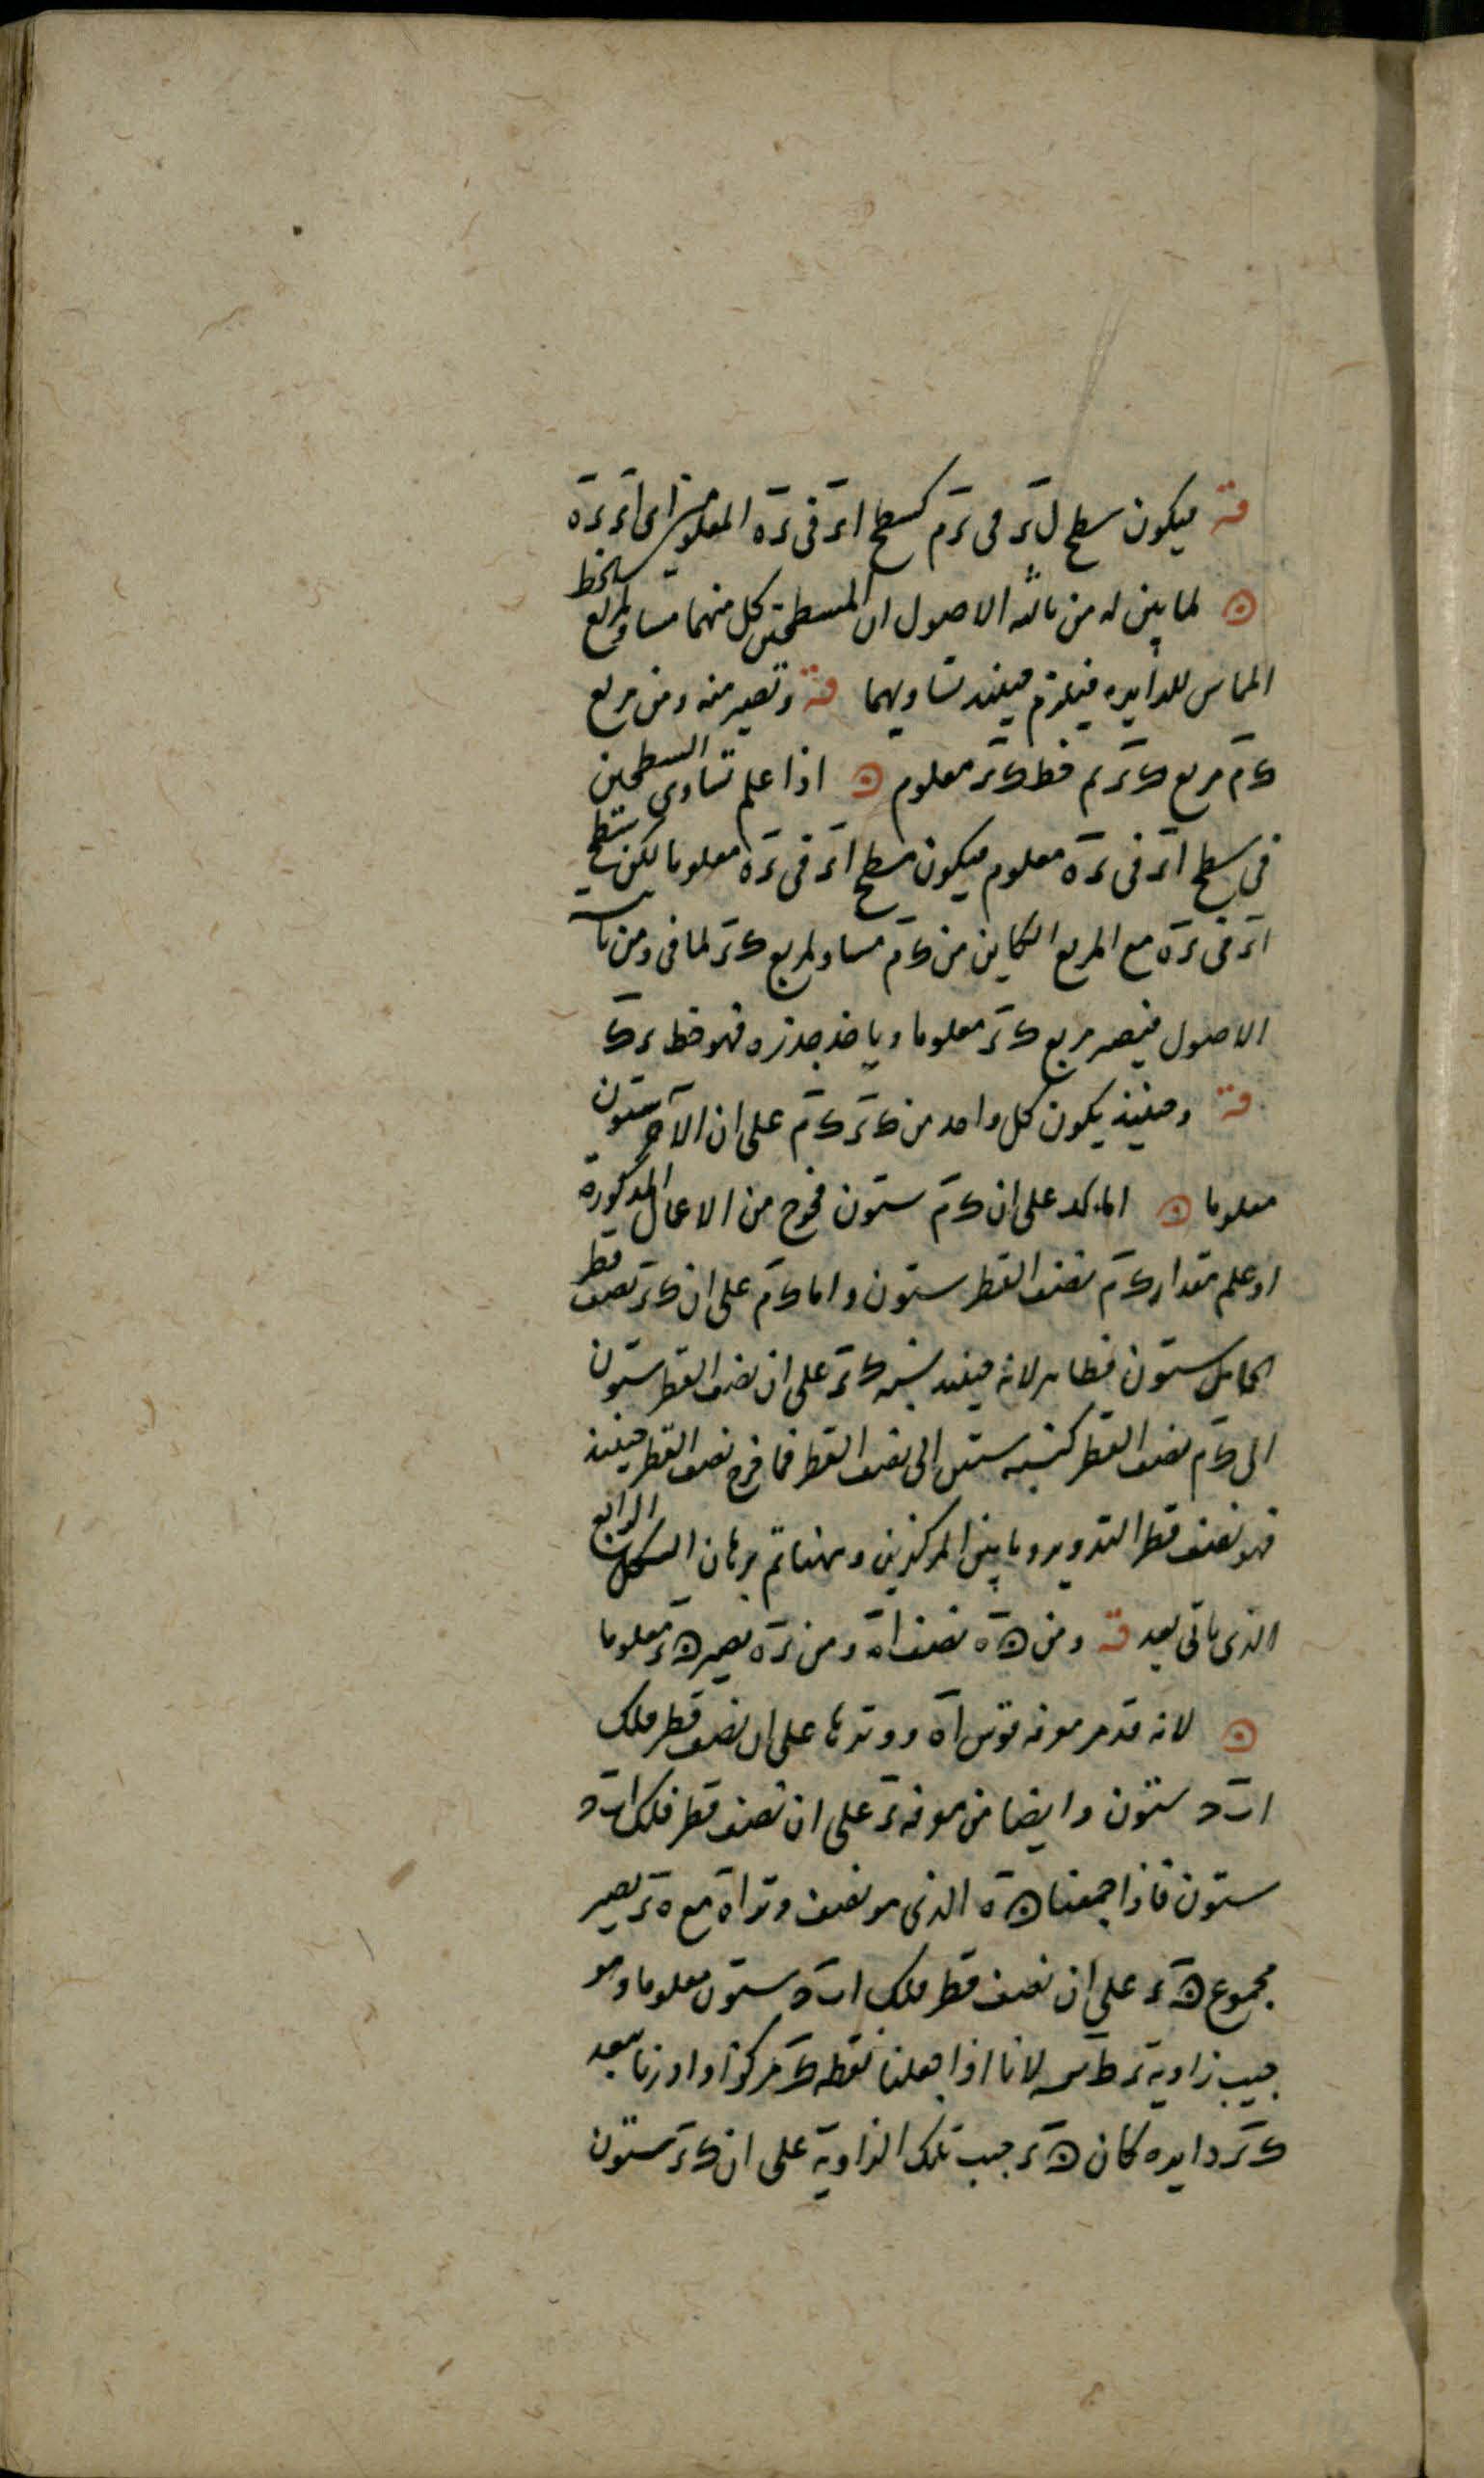 قه فيكون سطح ل ز فى ز م كسطح ا ز فى ز ه المعلومين اى ا ز ز ه
لما بين له من ثالثه الاصول ان المسطحين كل منهما مساو لمربع الخط
المماس للدايره فيلزم حينئذ تساويهما قه وتصير منه ومن مربع
ك م مربع ك ز ثم خط ك ز معلوم اذا علم تساوى السطحين
فى سطح ا ز فى ز ه معلوم فيكون سطح ا ز فى ز ه معلوما لكن سطح
ا ز فى ز ه مع المربع الكاين من ك م مساو لمربع ك ز لما فى من
الاصول فيصير مربع ك ز معلوما وياخذ جذره فهو خط ز ك
قه وحينئذ يكون كل واحد من ك ز ك م على ان الآخر ستون
معلوما اما ك على ان ك م ستون فخرج من الاعمال المذكورة
اذ علم مقدار ك م نصف القطر ستون واما ك م على ان ك ز نصف قطر
الحامل ستون فظاهر لانه حينئذ نسبه ك ز على ان نصف القطر ستون
الى ك م نصف القطر كنسبه ستين الى نصف القطر فما خرج نصف القطر حينئذ
فهو نصف قطر التدوير وما بين المركزين وههنا تم برهان الشكل الرابع
الذى ياتى بعد قه ومن ن ه نصف ا ه ومن ز ه يصير ن ز معلوما
لانه قد مر معرفه قوس ا ه ووترها على ان نصف قطر فلك
ا ب د ستون وايضا من معرفه ز على ان نصف قطر فلك ا ب د
ستون فاذا جمعنا ن ه الذى هو نصف وتر ا ه مع ه ز يصير
مجموع ن ز على ان نصف قطر فلك ا ب د ستون معلوما وهو
جيب زاوية ز ط س لانا اذا جعلنا نقطه ك مركزا وادرنا ببعد
ك ز دايره كان ن ز جيب تلك الزاوية على ان ك ز ستون